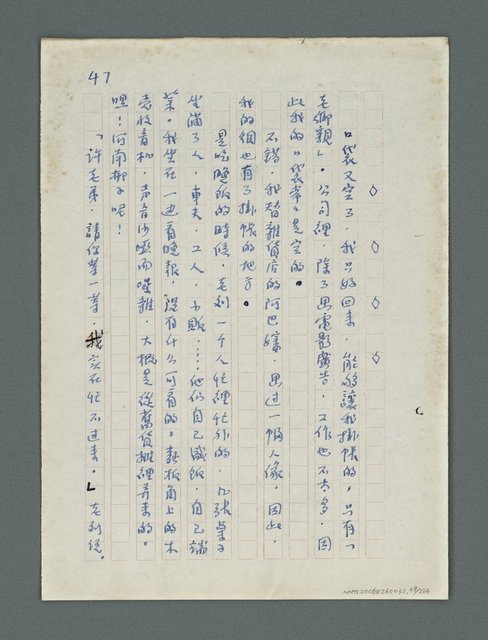 47
◇ ◇ ◇ ◇
口袋又空了，我只好回來，能夠讓我掛帳的，只有「
老鄉親」。公司裡，除了畫電影廣告，工作也不太多，因
此我的口袋常常是空的。
不錯，我替雜貨店的阿巴嬸，畫过一幅人像，因此，
我的烟也有了掛帳的地方。
是吃晚飯的時候，老刘一个人忙裡忙外的，几張桌子
坐滿了人，車夫，工人，小販……他們自己盛飯，自己端
菜。我坐在一边看晚報，沒有什么可看的。熱板角上的木
壳收音机，声音沙啞而噪雜，大概是從舊貨攤裡弄來的。
哩！河南梆子呢！
「許老弟，請你等一等，我实在忙不过來。」老刘說。
NMTL20060260032,48/224